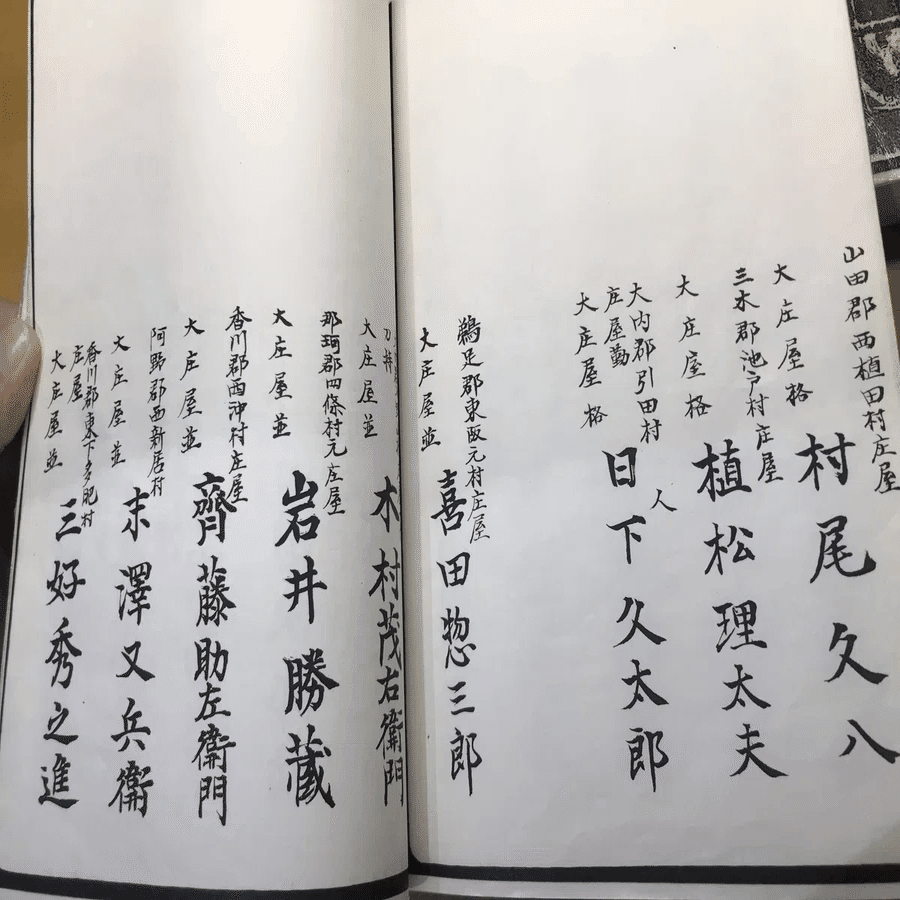 山田郡西植田村庄屋
村尾久八
大庄屋格
三木郡池戸村庄屋
植松理太夫
大庄屋格
大内郡引田村
庄屋勤
人
日下久太郎
大庄屋格
鵜足郡東阪元村庄屋
喜田惣三郎
大庄屋並
刀持
木村茂右衞門
大庄屋並
那珂郡四條村元庄屋
岩井勝蔵
大庄屋並
香川郡西沖村庄屋
齊藤助左衞門
大庄屋並
阿野郡西新居村
末澤又兵衞
大庄屋並
香川郡東下多肥村
庄屋
三好秀之進
大庄屋並